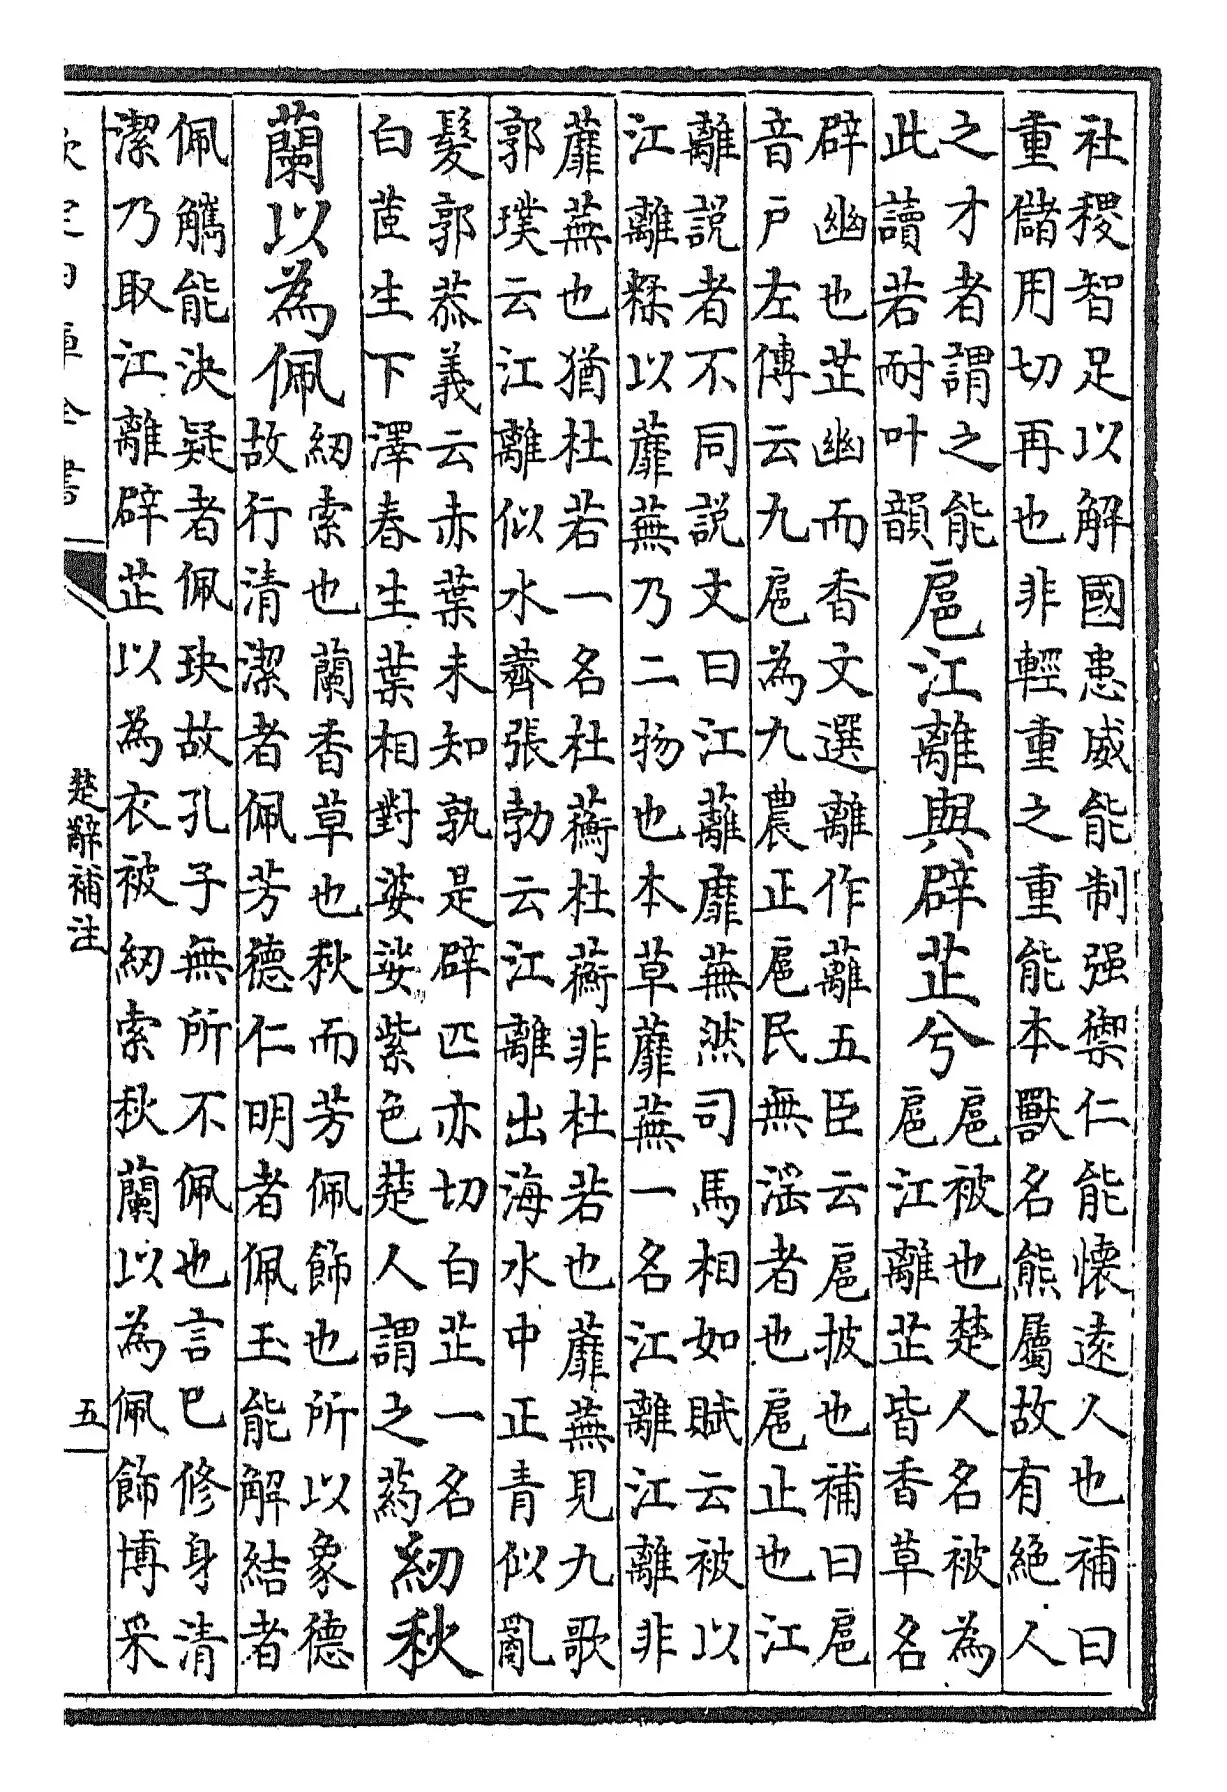 社稷智足以解國患威能制强禦仁能懷逺人也補曰
重儲用切再也非輕重之重能本獸名熊屬故有絶人
之才者謂之能
此讀若耐叶韻
扈江離與辟芷兮
扈被也楚人名被為
扈江離芷皆香草名
辟幽也芷幽而香文選離作蘺五臣云扈披也補曰扈
音戸左傳云九扈為九農正扈民無滛者也扈止也江
離説者不同説文曰江蘺蘼蕪然司馬相如賦云被以
江離糅以蘼蕪乃二物也本草蘼蕪一名江離江離非
蘼蕪也猶杜若一名杜蘅杜蘅非杜若也蘼蕪見九歌
郭璞云江離似水薺張勃云江離出海水中正青似亂
髮郭恭義云赤葉未知孰是辟匹亦切白芷一名
白茝生下澤春生葉相對婆娑紫色楚人謂之葯
紉秋
蘭以為佩
紉索也蘭香草也秋而芳佩飾也所以象德
故行清潔者佩芳德仁明者佩玉能解結者
佩觿能決疑者佩玦故孔子無所不佩也言已修身清
潔乃取江離辟芷以為衣被紉索秋蘭以為佩飾博采
楚辭補注
五